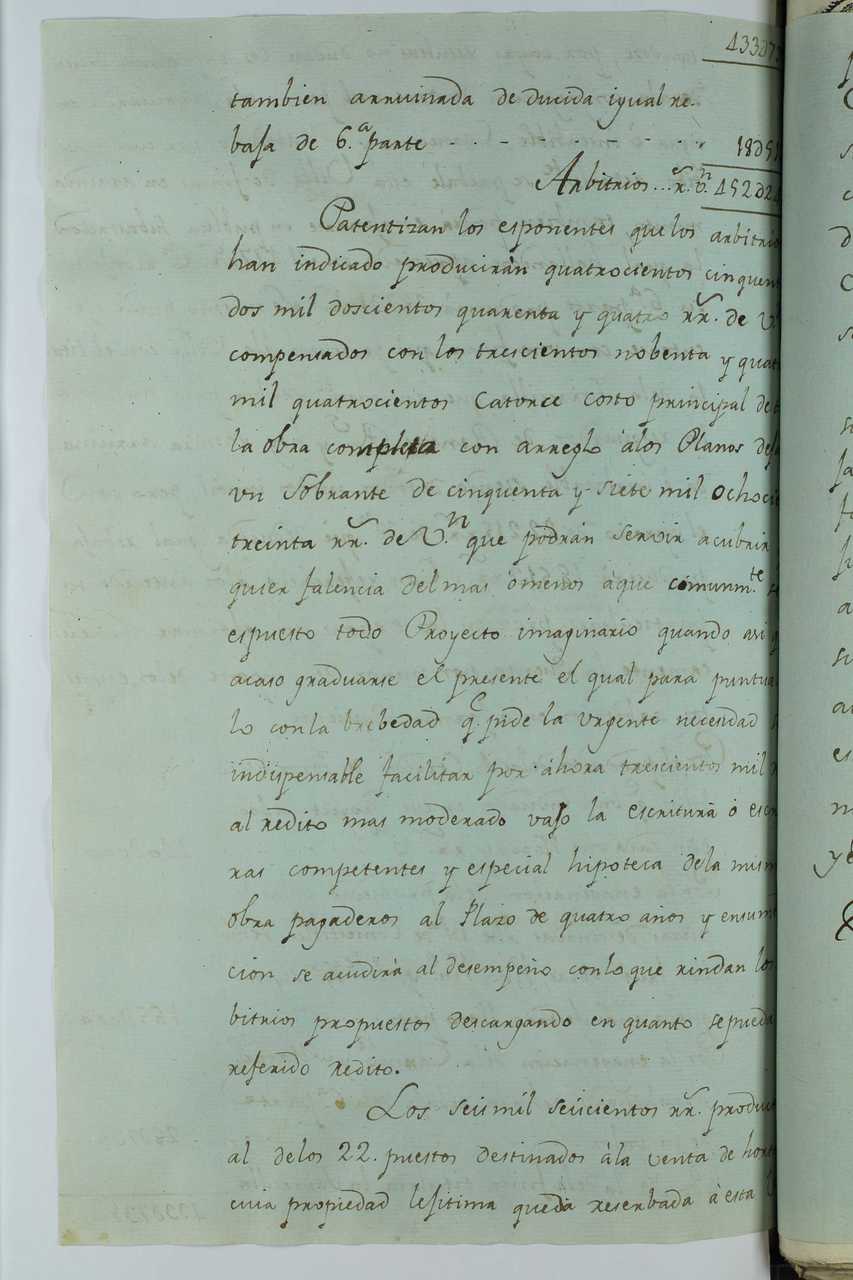 433d7
tambien arruinada de ducida igual re-
baja de 6.ª parte - - - - - - - 18d5
Arbitrios... r.s v.n 452d2
Patentizan los esponentes que los arbitrio
han indicado producirán quatrocientos cinquen
dos mil doscientos quarenta y quatro rr.s de V.
compensados con los trescientos nobenta y quat
mil quatrocientos Catorce costo principal de
la obra completa con arreglo álos Planos de
vn Sobrante de cinquenta y siete mil ochoci
treinta rr.s de V.n que podrán servir acubrir
quier falencia del mas ómenos áque comunm.te
espuesto todo Proyecto imaginario quando asi
acaso graduarse el presente el qual para puntua
lo conla brebedad q.e pide la vrgente necesidad
indispensable facilitar por áhora trescientos mil
al redito mas moderado vajo la escritura ó escr
ras competentes y especial hipoteca dela mism
obra pagaderos al Plazo de quatro años y ensum
cion se acudirá al desempeño conlo que rindan los
bitrios propuestos descargando en quanto sepueda
referido redito.
Los seis mil seiscientos rr.s produci
al delos 22. puestos destinados ála venta de hort
cuia propiedad lesitima queda reserbada á esta